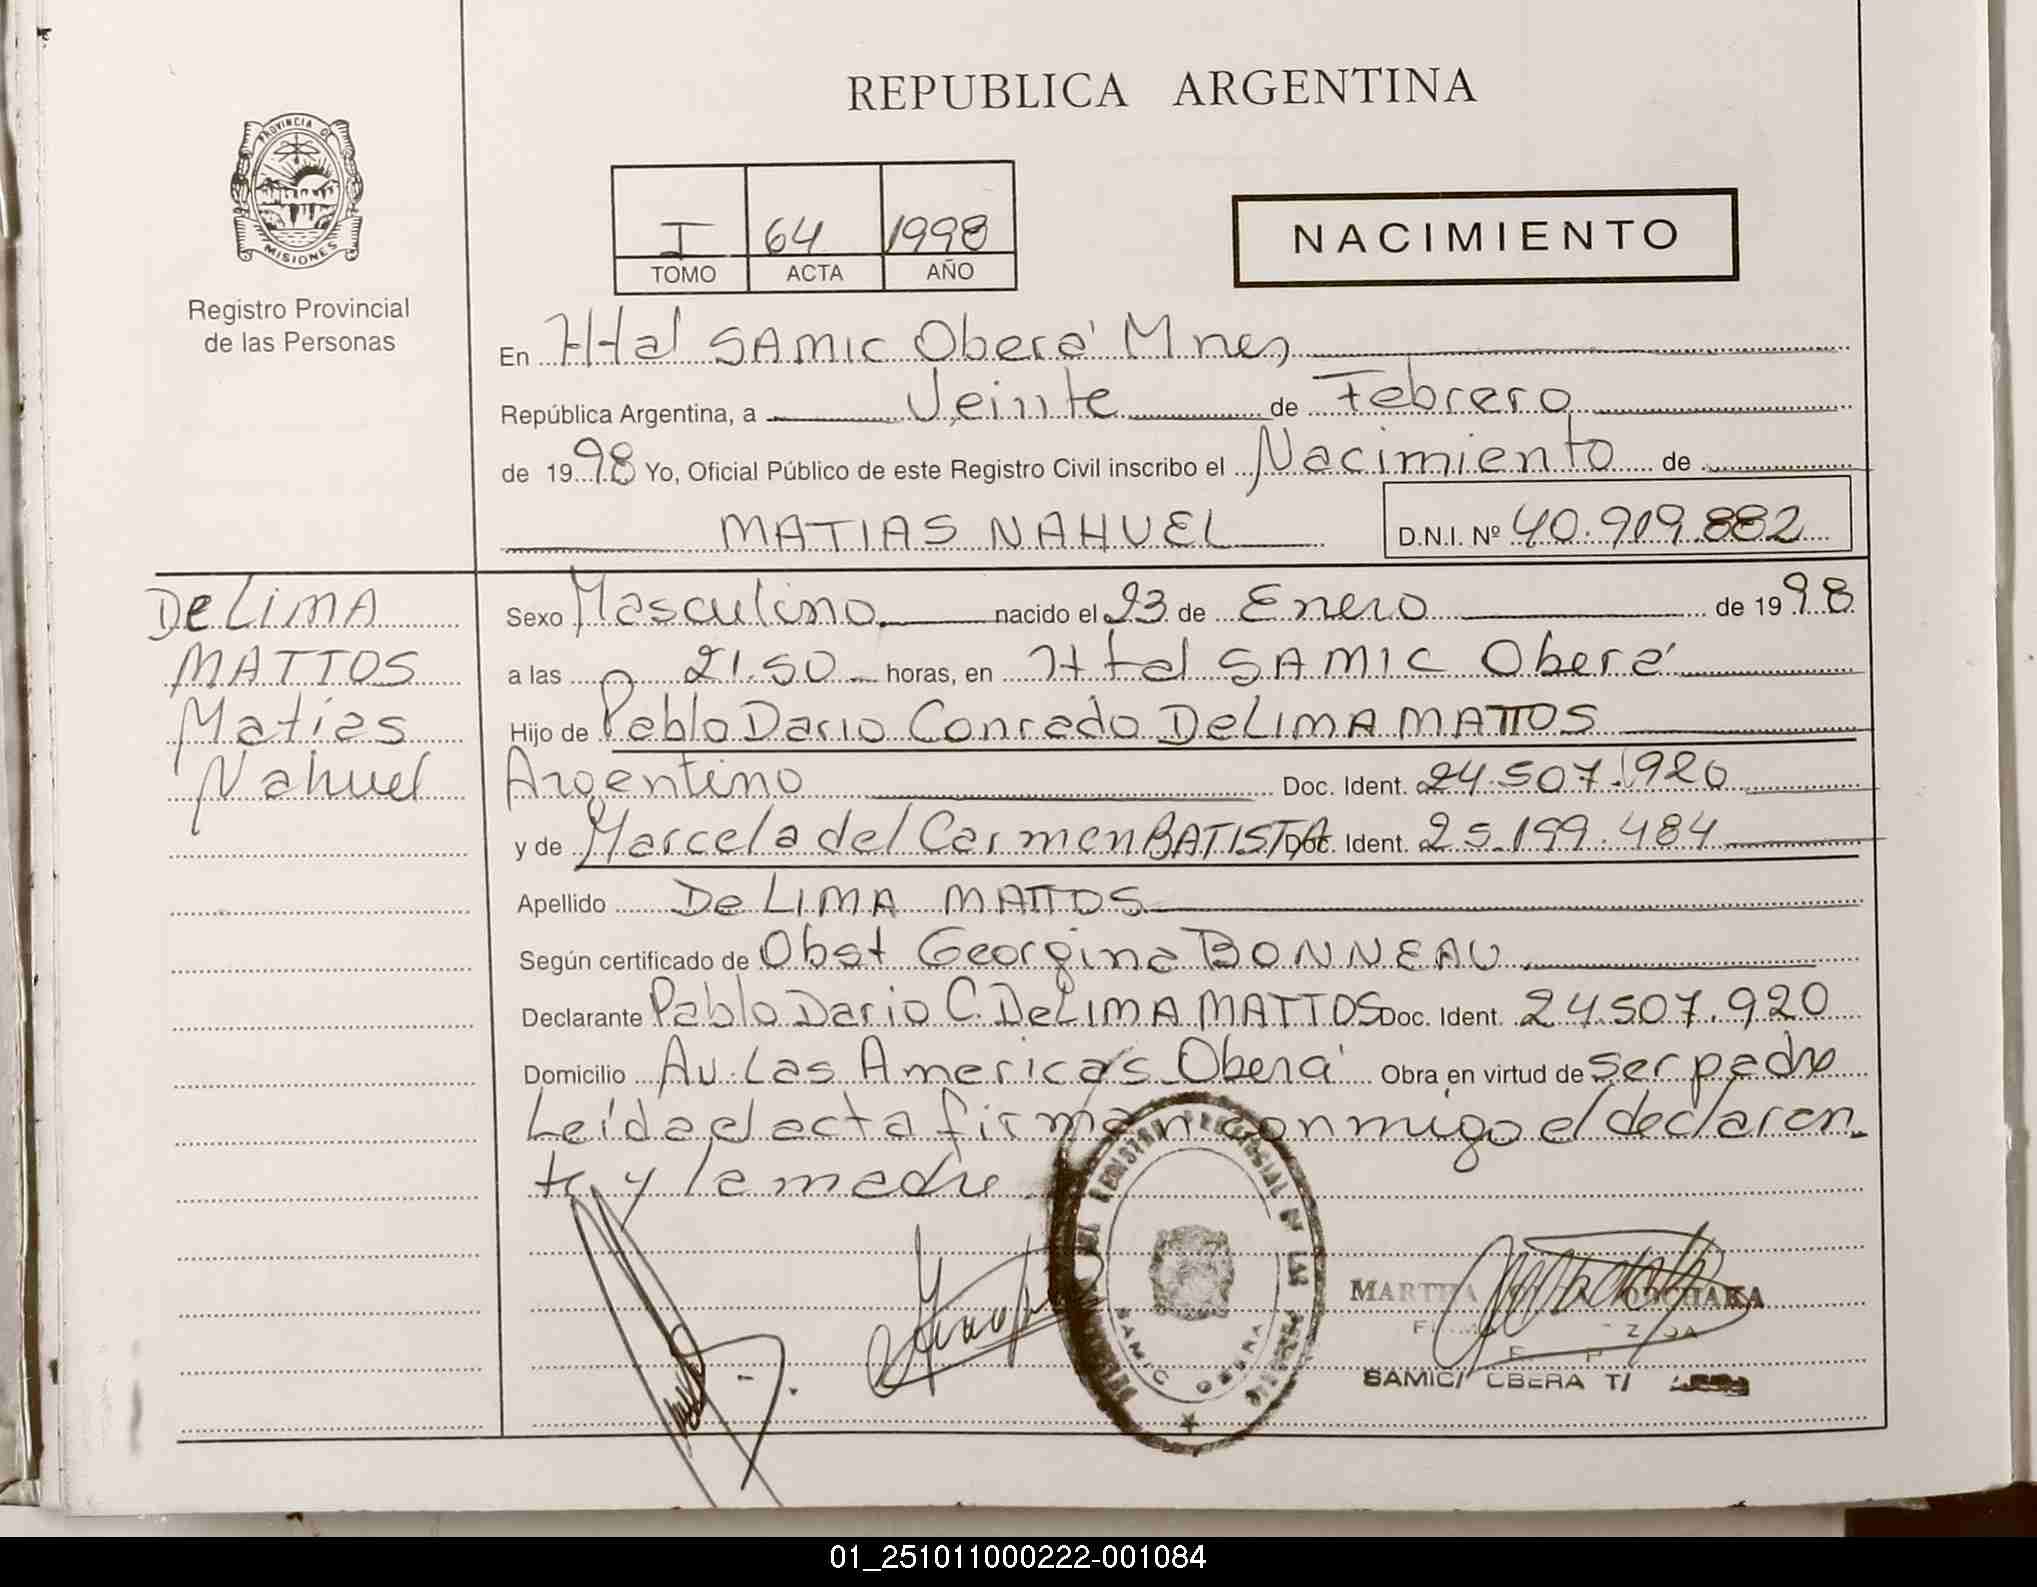 REPUBLICA ARGENTINA
PROVINCIA D
MISIONES
Registro Provincial
de las Personas
I 64 1998
TOMO ACTA AÑO
NACIMIENTO
En Htal SAMIC Oberá Mnes
República Argentina, a Veinte de Febrero
de 1998 Yo, Oficial Público de este Registro Civil inscribo el Nacimiento de
MATIAS NAHUEL D.N.I. Nº 40.919.882
De LIMA
MATTOS
Matias
Nahuel
Sexo Masculino nacido el 23 de Enero de 1998
a las 21.50 horas, en Htal SAMIC Oberá
Hijo de Pablo Dario Conrado De LIMA MATTOS
Argentino Doc. Ident. 24.507.920
y de Marcela del Carmen BATISTA Doc. Ident. 25.199.484
Apellido De LIMA MATTOS
Según certificado de Obst Georgina BONNEAU
Declarante Pablo Dario C. De LIMA MATTOS Doc. Ident. 24.507.920
Domicilio Av. Las Americas Oberá Obra en virtud de ser padre
Leída el acta firman conmigo el declaran
te y la madre
MARTHA
SAMIC OBERA
SAMIC/ OBERA
01_251011000222-001084